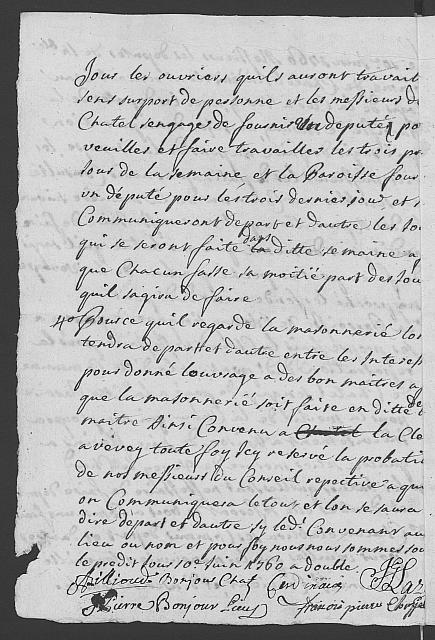 Jous les ouvriers quils auront travail
sens surport de personne et les messieurs d
Chatel sengage de fournis un deputé po
veuilles et faire travailles les trois pr
tous de la semaine et la Paroisse four
un député pour les trois dernies jou et s
Communiqueront depart et dautre les to
qui se seront faite dans la ditte semaine a
que Chacun fasse sa moitié part des tou
quil sagira de faire
4o Pource quil regarde la masonnerié los
tendra depart et dautre entre les Interess
pour donné louvrage a des bon maitres a
que la masonnerié soit faite en ditte de
maitre Ainsi Convenu a Chatel la Cle
a vevey toute foy Icy reservé la probati
de nos messieurs du Conseil repective a qui
on Communiquera letout et lon se saura
dire départ et dautre sy led. Convenant au
lieu ou non et pour foy nous nous sommes sou
le predit Jour 10e Juin 1760 a double
Pillioud Bonjour Chat
Pierre Bonjour Lieut françois pierre